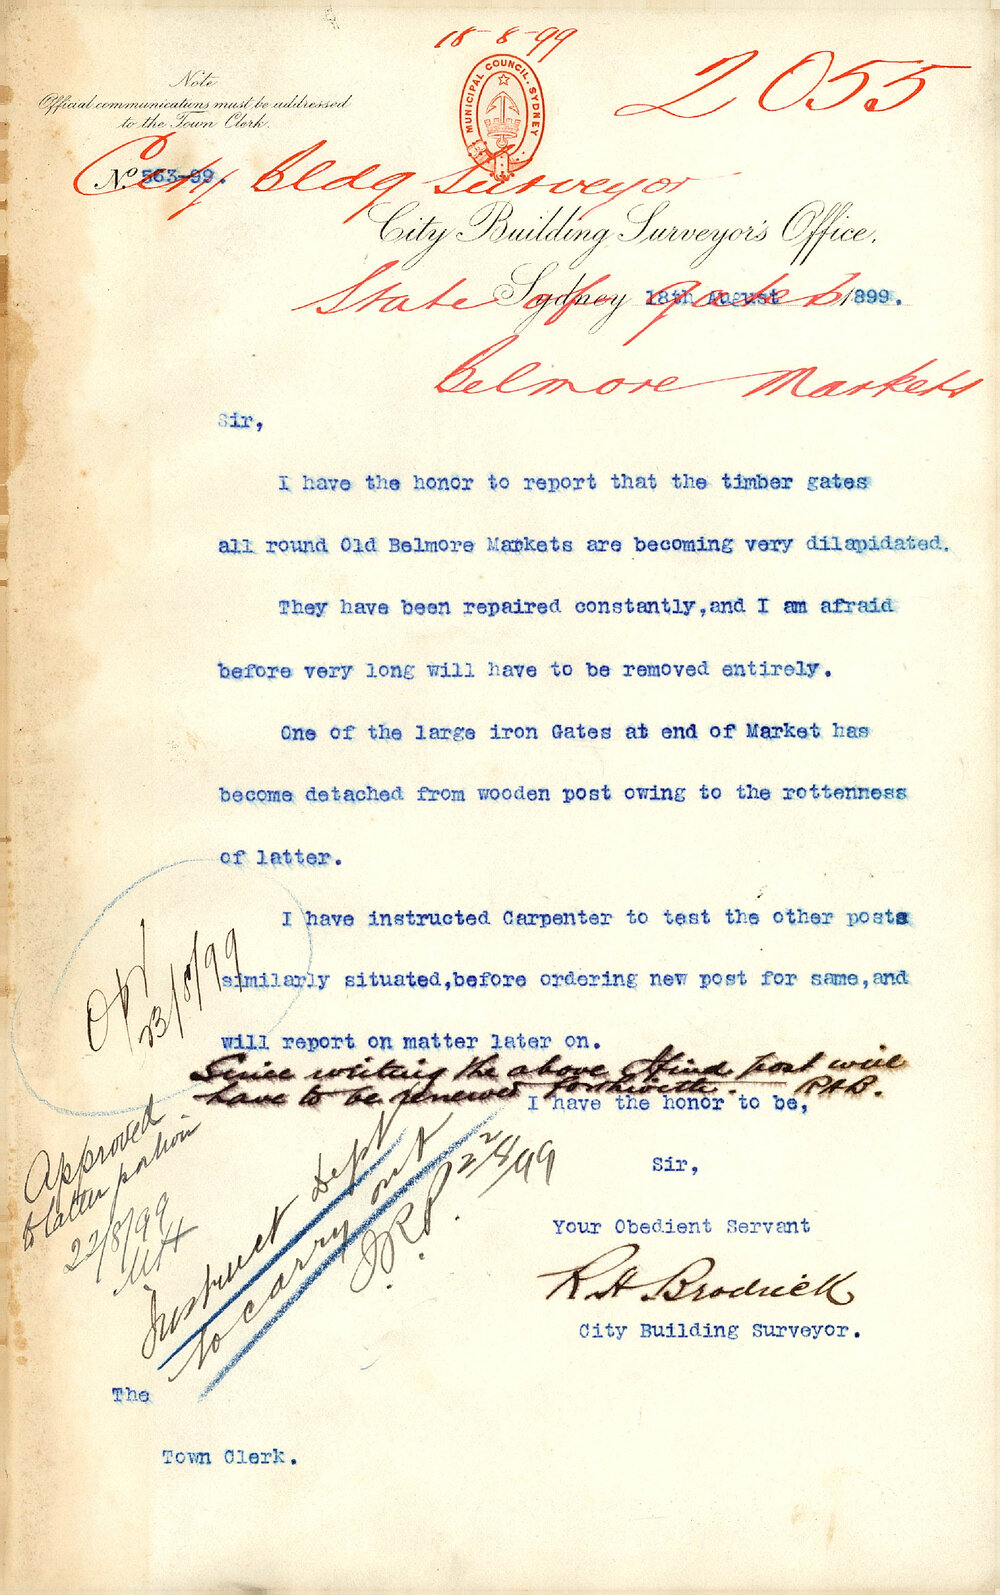 18-8-99
2055
MUNICIPAL COUNCIL. SYDNEY
Note
Official communications must be addressed
to the Town Clerk.
No. 563-99.
City Bldg Surveyor
City Building Surveyor's Office.
Sydney 18th August 1899.
State of Gates
Belmore Markets
Sir,
I have the honor to report that the timber gates
all round Old Belmore Markets are becoming very dilapidated.
They have been repaired constantly,and I am afraid
before very long will have to be removed entirely.
One of the large iron Gates at end of Market has
become detached from wooden post owing to the rottenness
of latter.
I have instructed Carpenter to test the other posts
similarly situated,before ordering new post for same,and
will report on matter later on.
Since writing the above I find post will
have to be renewed forthwith. RHB.
I have the honor to be,
Sir,
Your Obedient Servant
R H Brodrick
City Building Surveyor.
23/8/99
Approved
to latter portion
22/8/99
Instruct Dept
to carry out
22/8/99
The
Town Clerk.